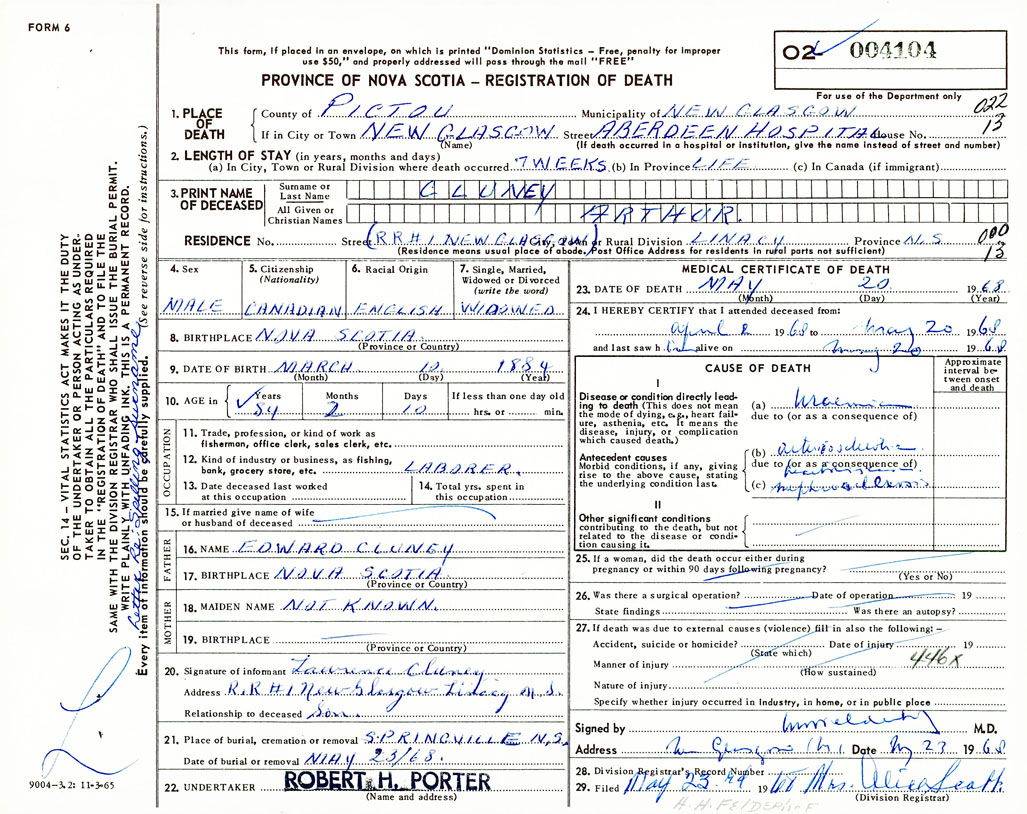 FORM 6
This form, if placed in an envelope, on which is printed "Dominion Statistics – Free, penalty for improper
use $50," and properly addressed will pass through the mail "FREE"
02 004104
PROVINCE OF NOVA SCOTIA – REGISTRATION OF DEATH
For use of the Department only
022
13
1. PLACE OF DEATH
County of PICTOU Municipality of NEW GLASGOW
If in City or Town NEW GLASGOW Street ABERDEEN HOSPITAL House No.
(Name) (If death occurred in a hospital or institution, give the name instead of street and number)
2. LENGTH OF STAY (in years, months and days)
(a) In City, Town or Rural Division where death occurred 7 WEEKS (b) In Province LIFE (c) In Canada (if immigrant)
3. PRINT NAME OF DECEASED
Surname or Last Name CLUNEY
All Given or Christian Names ARTHUR.
RESIDENCE No. Street (RR#1 NEW GLASGOW) City, Town or Rural Division LINACY Province N.S.
(Residence means usual place of abode. Post Office Address for residents in rural parts not sufficient)
000
13
4. Sex
MALE
5. Citizenship
(Nationality)
CANADIAN
6. Racial Origin
ENGLISH
7. Single, Married,
Widowed or Divorced
(write the word)
WIDOWED
8. BIRTHPLACE NOVA SCOTIA.
(Province or Country)
9. DATE OF BIRTH MARCH 10, 1884
(Month) (Day) (Year)
10. AGE in Years Months Days If less than one day old
84 2 10 hrs. or min.
OCCUPATION
11. Trade, profession, or kind of work as
fisherman, office clerk, sales clerk, etc.
12. Kind of industry or business, as fishing,
bank, grocery store, etc. LABORER.
13. Date deceased last worked
at this occupation
14. Total yrs. spent in
this occupation
15. If married give name of wife
or husband of deceased
FATHER
16. NAME EDWARD CLUNEY
17. BIRTHPLACE NOVA SCOTIA
(Province or Country)
MOTHER
18. MAIDEN NAME NOT KNOWN.
19. BIRTHPLACE
(Province or Country)
20. Signature of informant Lawrence Cluney
Address R.R#1 New Glasgow Linacy N.S.
Relationship to deceased Son.
21. Place of burial, cremation or removal SPRINGVILLE N.S.
Date of burial or removal MAY 23/68.
22. UNDERTAKER ROBERT H. PORTER
(Name and address)
MEDICAL CERTIFICATE OF DEATH
23. DATE OF DEATH MAY 20 1968
(Month) (Day) (Year)
24. I HEREBY CERTIFY that I attended deceased from:
April 2 1968 to May 20 1968
and last saw him alive on May 20 1968
CAUSE OF DEATH
Approximate
interval be-
tween onset
and death
I
Disease or condition directly lead-
ing to death (This does not mean
the mode of dying, e.g., heart fail-
ure, asthenia, etc. It means the
disease, injury, or complication
which caused death.)
(a) Uraemia
due to (or as a consequence of)
Antecedent causes
Morbid conditions, if any, giving
rise to the above cause, stating
the underlying condition last.
(b) arteriosclerotic
due to (or as a consequence of)
(c) nephrosclerosis
II
Other significant conditions
contributing to the death, but not
related to the disease or condi-
tion causing it.
25. If a woman, did the death occur either during
pregnancy or within 90 days following pregnancy?
(Yes or No)
26. Was there a surgical operation? Date of operation 19
State findings Was there an autopsy?
27. If death was due to external causes (violence) fill in also the following: –
Accident, suicide or homicide? Date of injury 19
(State which)
446X
Manner of injury
(How sustained)
Nature of injury
Specify whether injury occurred in industry, in home, or in public place
Signed by M.D.
Address New Glasgow N.S. Date May 23 1968
28. Division Registrar's Record Number 79
29. Filed May 23 1968 Mrs. Alice Scott
(Division Registrar)
H.H. FELDERHOF
SEC. 14 – VITAL STATISTICS ACT MAKES IT THE DUTY
OF THE UNDERTAKER OR PERSON ACTING AS UNDER-
TAKER TO OBTAIN ALL THE PARTICULARS REQUIRED
IN THE "REGISTRATION OF DEATH" AND TO FILE THE
SAME WITH THE DIVISION REGISTRAR WHO SHALL ISSUE THE BURIAL PERMIT.
WRITE PLAINLY WITH UNFADING INK. THIS IS A PERMANENT RECORD.
Letter Re: Spelling Surname
Every item of information should be carefully supplied. (See reverse side for instructions.)
9004-3.2: 11-3-65